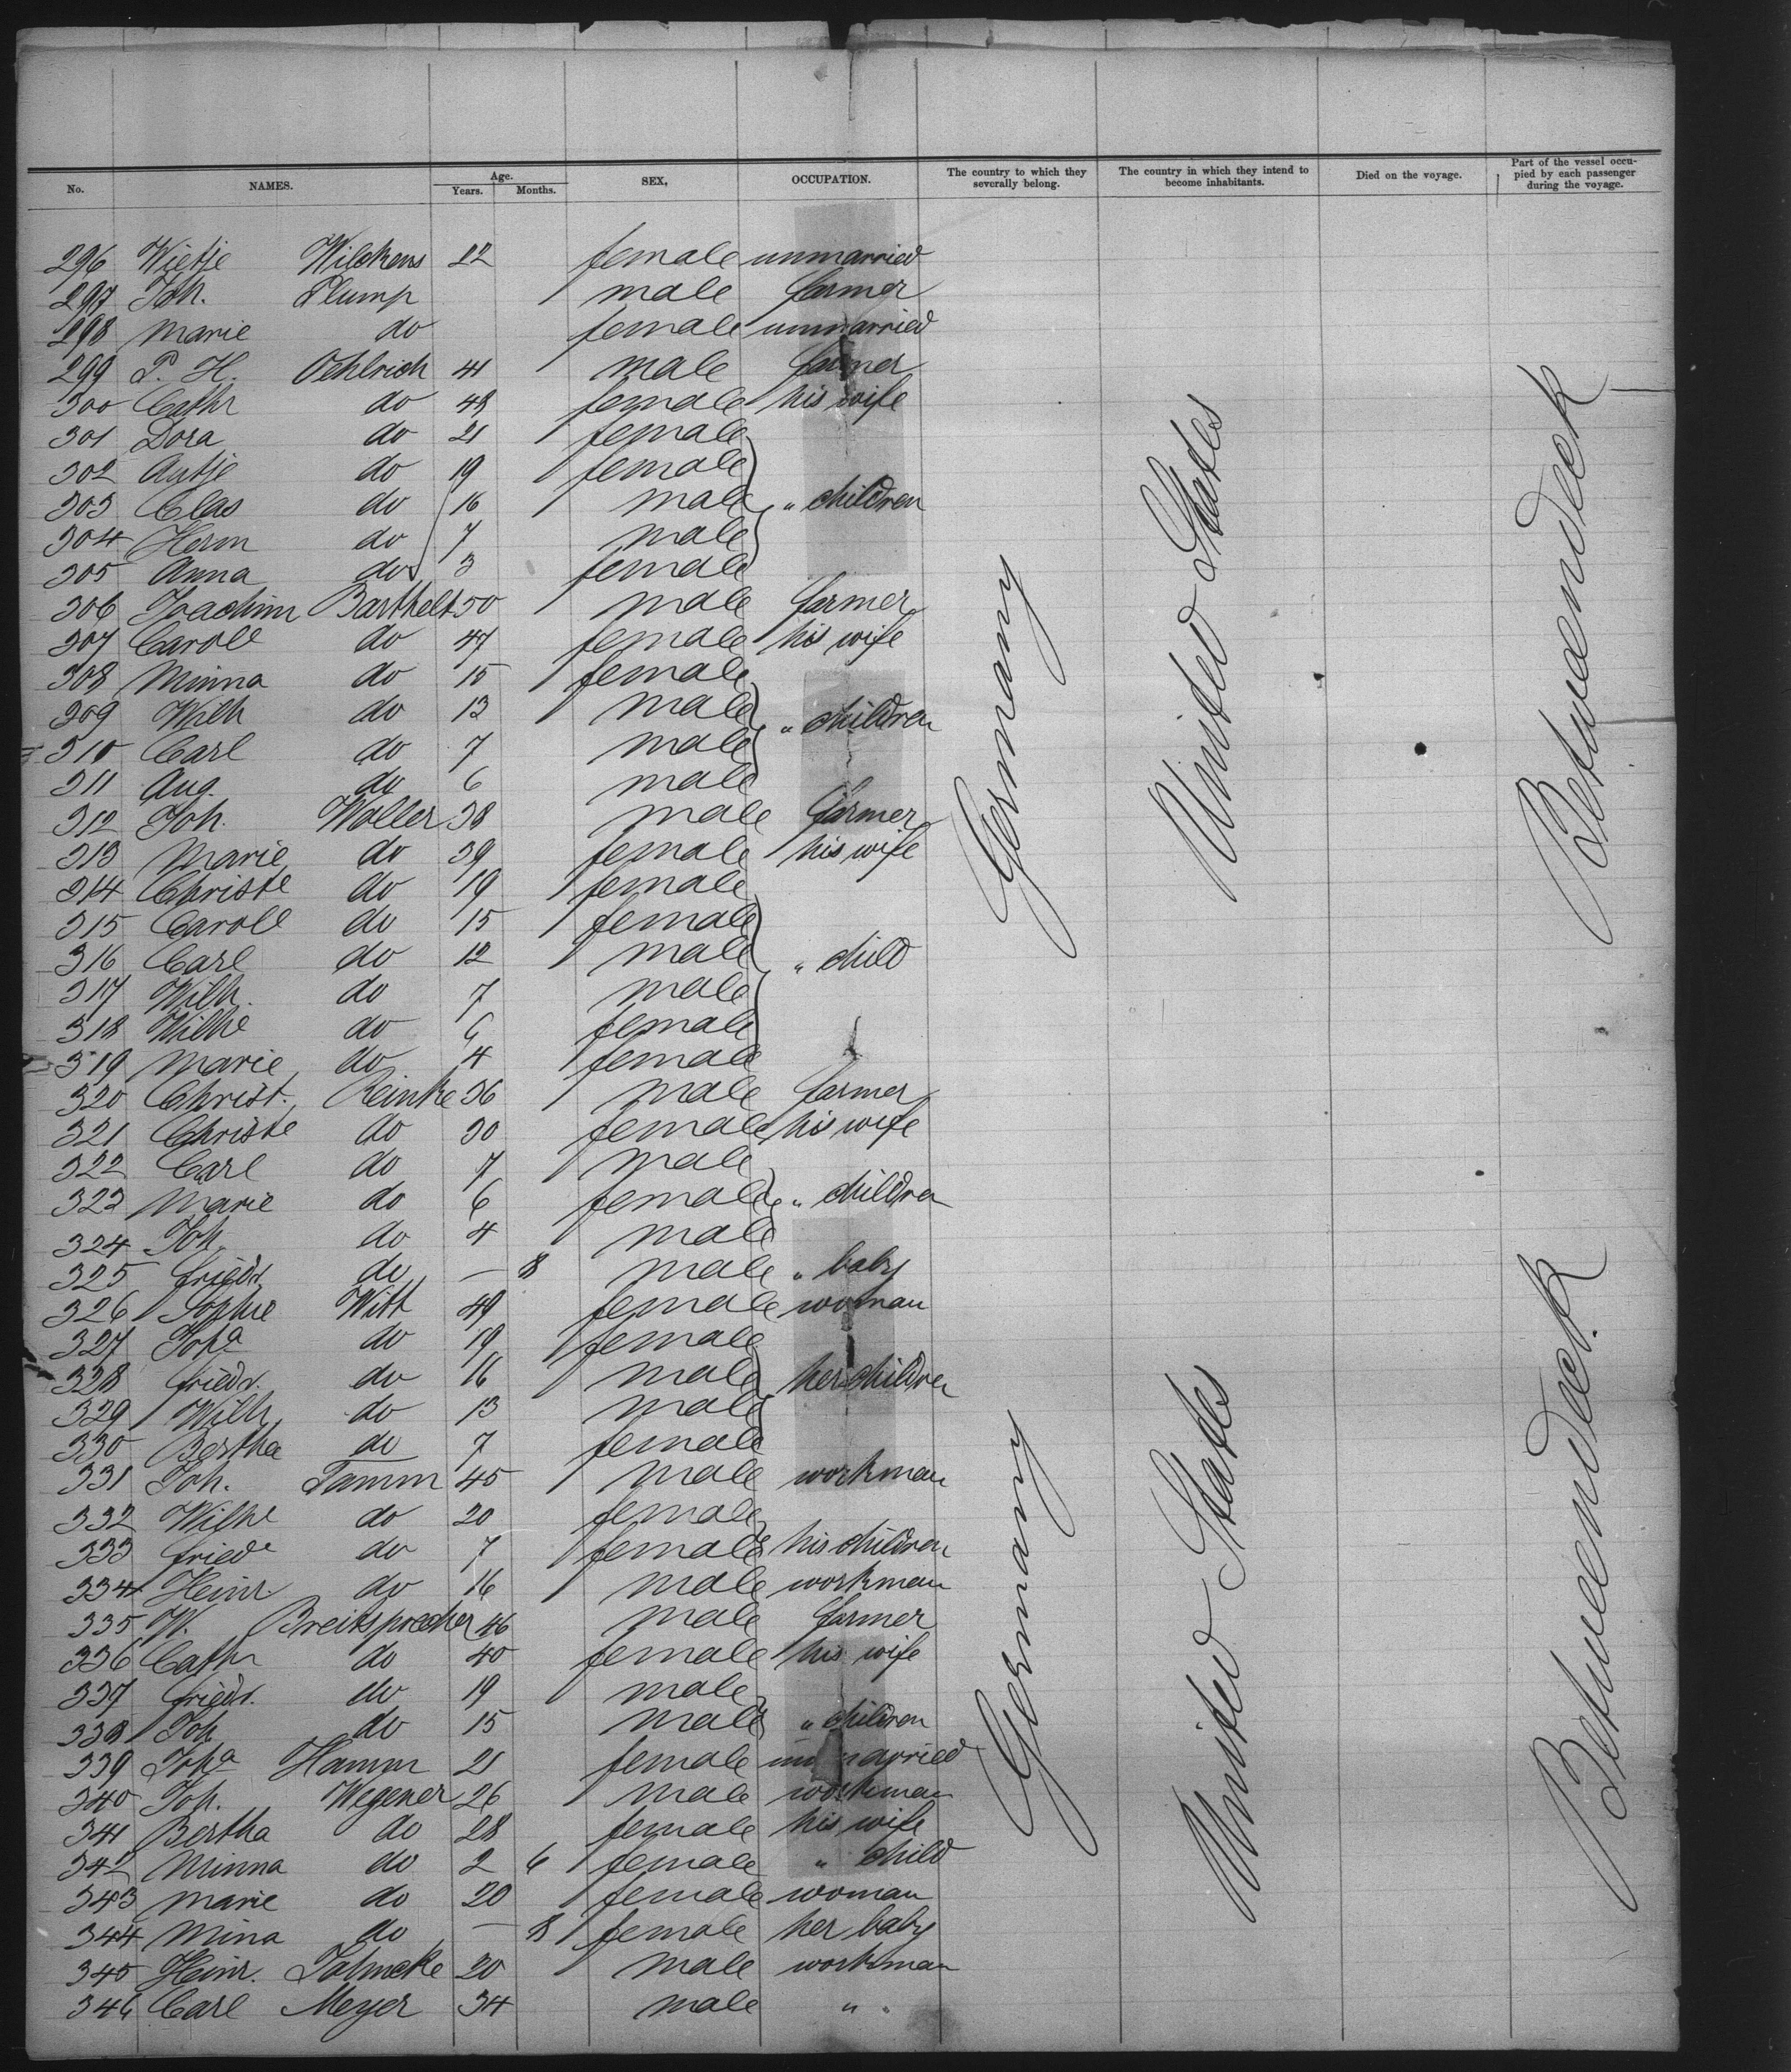 No. NAMES. Age. Years. Months. SEX, OCCUPATION. The country to which they severally belong. The country in which they intend to become inhabitants. Died on the voyage. Part of the vessel occupied by each passenger during the voyage.
296 Wietje Wilckens 22 female unmarried
297 Joh. Plump male farmer
298 Marie do female unmarried
299 P. H. Oehlrich 41 male farmer
300 Cathr do 43 female his wife
301 Dora do 21 female
302 Antje do 19 female
303 Clas do 16 male " children
304 Herm do 7 male
305 Anna do 3 female
306 Joachim Barthelt 50 male farmer
307 Carole do 47 female his wife
308 Minna do 15 female
309 Wilh do 13 male " children
310 Carl do 7 male
311 Aug. do 6 male
312 Joh. Woller 38 male farmer
313 Marie do 39 female his wife
314 Christe do 19 female
315 Carole do 15 female
316 Carl do 12 male " child
317 Wilh. do 7 male
318 Wilhe do 6 female
319 Marie do 4 female
320 Christ. Reinke 36 male farmer
321 Christe do 30 female his wife
322 Carl do 7 male
323 Marie do 6 female " children
324 Joh. do 4 male
325 Friedr. do — 8 male " baby
326 Sophie Witt 49 female woman
327 Joha do 19 female
328 Friedr. do 16 male her children
329 Wilh. do 13 male
330 Bertha do 7 female
331 Joh. Tamm 45 male workman
332 Wilhe do 20 female
333 Friede do 7 female his children
334 Heinr. do 16 male workman
335 W. Breitsprecher 46 male farmer
336 Cathr do 40 female his wife
337 Friedr. do 19 male
338 Joh. do 15 male " children
339 Joha Hamm 21 female unmarried
340 Joh. Wegener 26 male workman
341 Bertha do 28 female his wife
342 Minna do 2 6 female " child
343 Marie do 20 female woman
344 Mina do — 8 female her baby
345 Heinr. 20 male workman
346 Carl Meyer 34 male " "
Germany
United States
Betweendeck
Germany
United States
Betweendeck